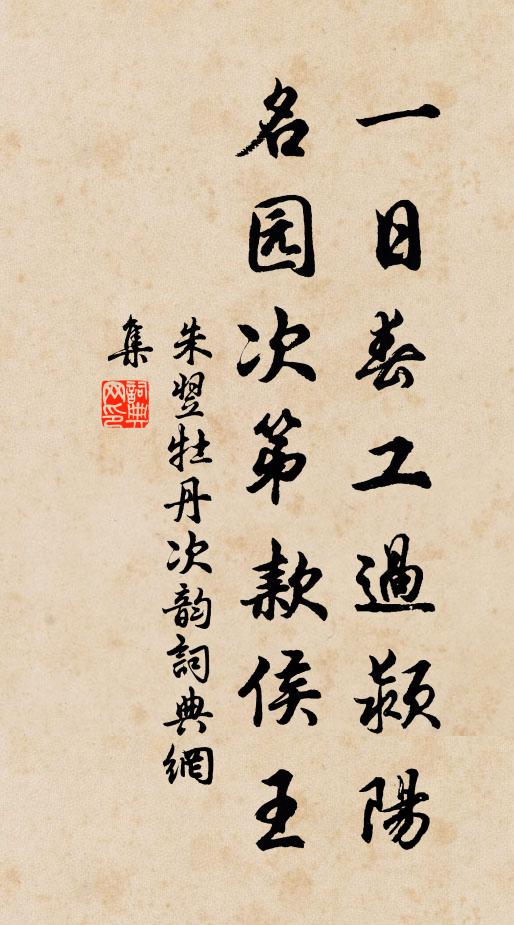 一日春工過潁陽
名园次第款侯王
朱翌牡丹次韵詞典網
集
詞典網印